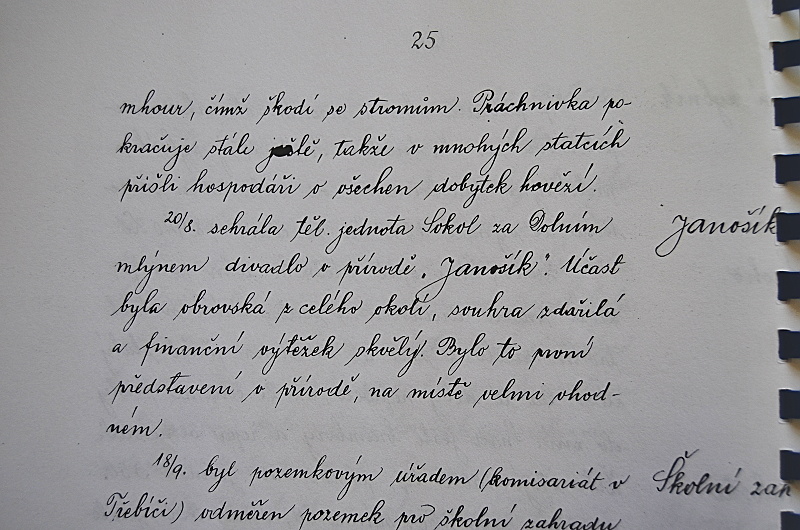 25
mhour, čímž škodí se stromům. Práchnivka po-
kračuje stále ještě, takže v mnohých statcích
přišli hospodáři o všechen dobytek hovězí.
20/8. sehrála těl. jednota Sokol za Dolním Janošík
mlýnem divadlo v přírodě „Janošík". Účast
byla obrovská z celého okolí, souhra zdařilá
a finanční výtěžek skvělý. Bylo to první
představení v přírodě, na místě velmi vhod-
ném.
18/9. byl pozemkovým úřadem (komisariát v Školní zah
Třebíči) odměřen pozemek pro školní zahradu